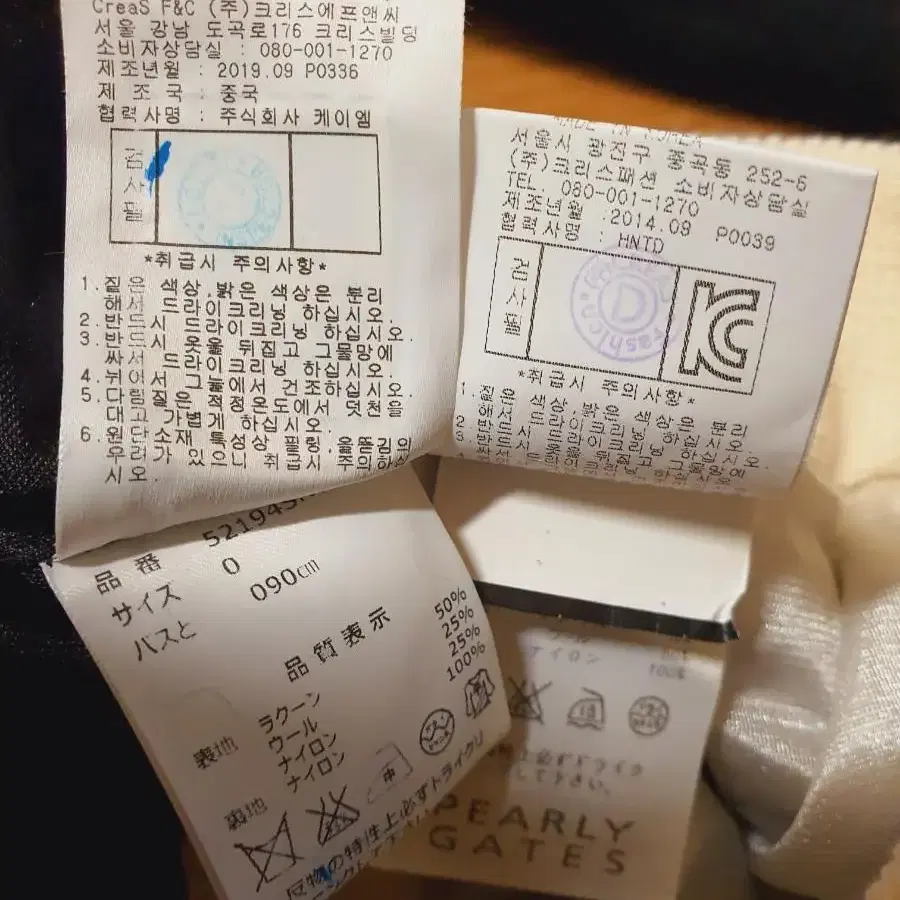 CreaS F&C (주)크리스에프앤씨
서울 강남 도곡로176 크리스빌딩
소비자상담실 : 080-001-1270
제조년월 : 2019.09 P0336
제 조 국 : 중국
협력사명 : 주식회사 케이엠
검사필
*취급시 주의사항*
1.짙은 색상,밝은 색상은 분리
해서 드라이크리닝 하십시오.
2.반드시 드라이크리닝 하십시오.
3.반드시 옷을 뒤집고 그물망에
싸서 드라이크리닝 하십시오.
4.뉘어서 그늘에서 건조하십시오.
5.다림질은 적정온도에서 덧천을
대고 가볍게 하십시오.
6.원단소재 특성상 필링,올뜯김의
우려가 있으니 취급시 주의하십
시오.
MADE IN KOREA
서울시 광진구 중곡동 252-6
(주)크리스패션 소비자상담실
TEL. 080-001-1270
제조년월 :2014.09 P0039
협력사명 : HNTD
검사필
D
KC
*취급시 주의사항*
1.짙은 색상,밝은 색상은 분리
品番 521945
サイズ 0
バスト 090cm
品質表示
表地 ラクーン 50%
ウール 25%
ナイロン 25%
裏地 ナイロン 100%
中
反物の特性上必ずドライクリ
ナイロン 100%
上必ずドライク
して下さい。
PEARLY
GATES